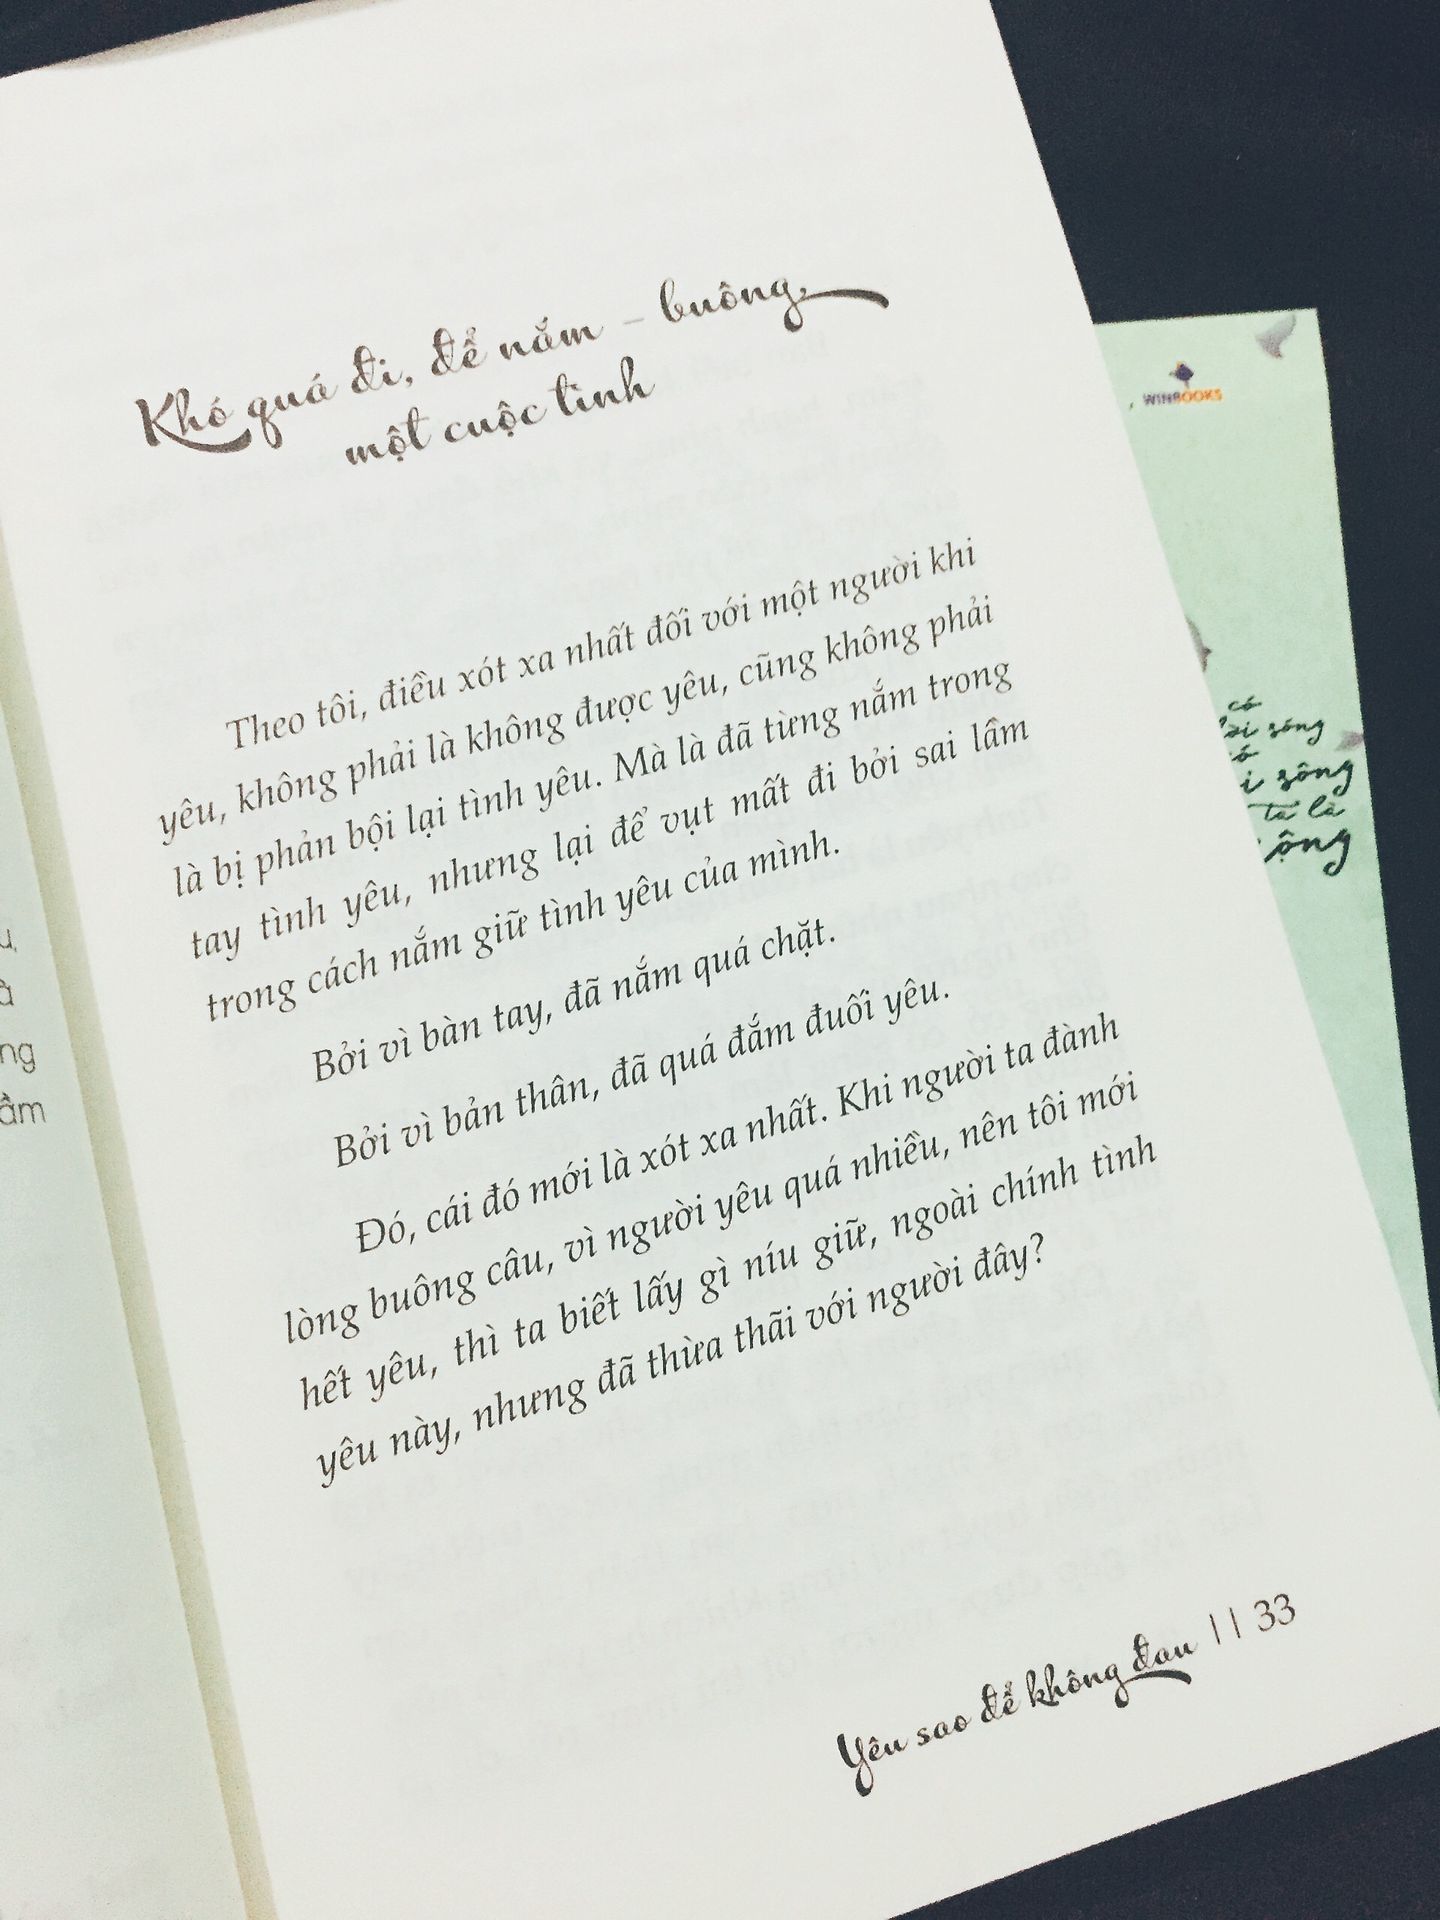 Khó quá đi, để nắm – buông,
một cuộc tình
Theo tôi, điều xót xa nhất đối với một người khi
yêu, không phải là không được yêu, cũng không phải
là bị phản bội lại tình yêu. Mà là đã từng nắm trong
tay tình yêu, nhưng lại để vụt mất đi bởi sai lầm
trong cách nắm giữ tình yêu của mình.
Bởi vì bàn tay, đã nắm quá chặt.
Bởi vì bản thân, đã quá đắm đuối yêu.
Đó, cái đó mới là xót xa nhất. Khi người ta đành
lòng buông câu, vì người yêu quá nhiều, nên tôi mới
hết yêu, thì ta biết lấy gì níu giữ, ngoài chính tình
yêu này, nhưng đã thừa thãi với người đây?
Yêu sao để không đau || 33
WINBOOKS
có
sông
sông
ta là
ộng
ng
ầm